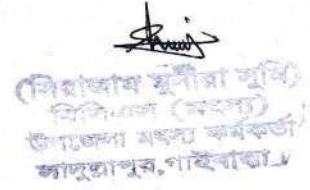 (সিরাজাম মুনীরা সুমি)
বিসিএস (মৎস্য)
উপজেলা মৎস্য কর্মকর্তা
সাদুল্লাপুর, গাইবান্ধা।